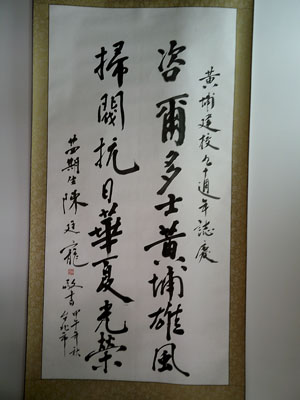 黃埔建校九十週年誌慶
咨爾多士黃埔雄風
掃閥抗日華夏光榮
期生陳廷寵敬書
甲午年秋